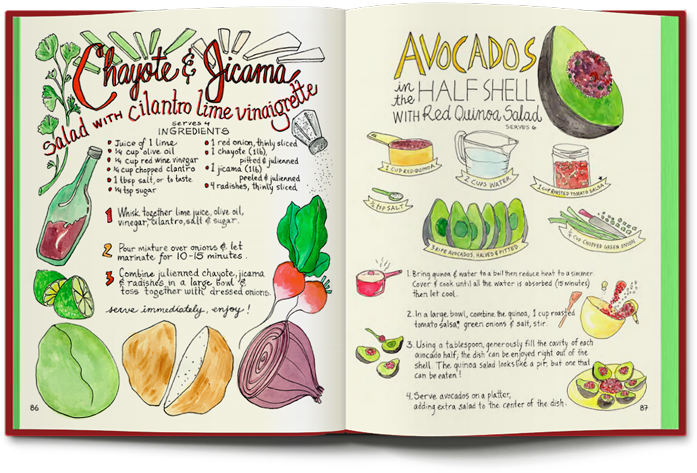 Chayote & Jicama
Salad with cilantro lime vinaigrette
serves 4
INGREDIENTS
Juice of 1 lime
1/4 cup olive oil
1/4 cup red wine vinegar
1/4 cup chopped cilantro
1 tbsp salt, or to taste
1/4 tsp sugar
1 red onion, thinly sliced
1 chayote (1 lb)
pitted & julienned
1 jicama (1 lb)
peeled & julienned
4 radishes, thinly sliced
1 Whisk together lime juice, olive oil,
vinegar, cilantro, salt & sugar.
2 Pour mixture over onions & let
marinate for 10-15 minutes.
3 Combine julienned chayote, jicama
& radishes in a large bowl &
toss together with dressed onions.
serve immediately, enjoy!
86
AVOCADOS
in the HALF SHELL
WITH Red Quinoa Salad
SERVES 6
1 CUP RED QUINOA
2 CUPS WATER
1 CUP ROASTED TOMATO SALSA*
TSP SALT
3 RIPE AVOCADOS, HALVED & PITTED
CUP CHOPPED GREEN ONION
1. Bring quinoa & water to a boil then reduce heat to a simmer.
Cover & cook until all the water is absorbed (15 minutes)
then let cool.
2. In a large bowl, combine the quinoa, 1 cup roasted
tomato salsa,* green onions & salt, stir.
3. Using a tablespoon, generously fill the cavity of each
avocado half, the dish can be enjoyed right out of the
shell. The quinoa salad looks like a pit, but one that
can be eaten!
4. Serve avocados on a platter,
adding extra salad to the center of the dish.
87